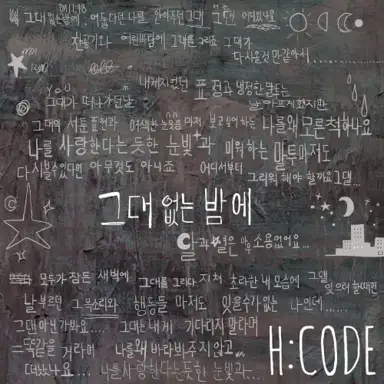 그대 없는 밤에, 어둡다던 나를 안아주던 그대 그댄 어디있나요
그대가
다시올것만같아서....
내게지었던 표정과 냉정한말투는
YOU
그대가 떠나가던날 날 아프게했지만
그대의 서툰 표현과 어색한 눈웃음 마저 보고싶어하는 나를왜 모른척하나요
나를 사랑한다는듯한 눈빛과 미워하는 말투마저도
다시볼수있다면 아무것도 아니죠 어디서부터 그리워 해야 할까요 그댈...
그대 없는 밤에
달과 별은 아무 소용없어요...
모두가 잠든 새벽에 그대를 그리다 지쳐 초라한 내 모습에 그댈 잊으려 할때면
날 부르던 그 목소리와 행동들 마저도 잊을수가없는 나인데......
그댄 아닌가봐요.... 그대는 내게 기다리지말라며
똑같을 거라며 나를왜 바라봐주지 않고
떠났나요... 나를사랑한다는듯한 눈빛과...
H:CODE